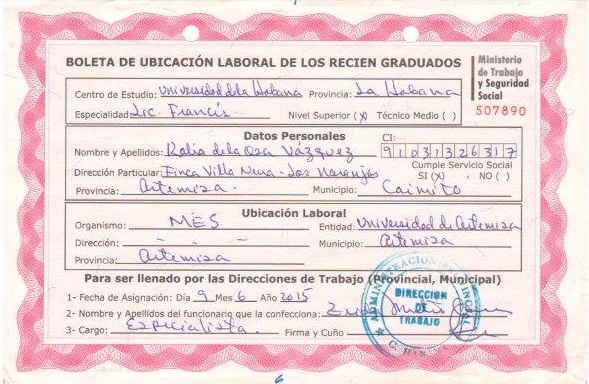 BOLETA DE UBICACIÓN LABORAL DE LOS RECIEN GRADUADOS
Ministerio
de Trabajo
y Seguridad
Social
507890
Centro de Estudio: Universidad de la Habana Provincia: La Habana
Especialidad: Lic. Francés Nivel Superior (x) Técnico Medio ( )
Datos Personales
CI:
Nombre y Apellidos: Ralia de la Osa Vázquez 91031326317
Cumple Servicio Social
Dirección Particular: Finca Villa Nena - Los Naranjos SI (x) , NO ( )
Provincia: Artemisa. Municipio: Caimito
Ubicación Laboral
Organismo: MES Entidad: Universidad de Artemisa
Dirección: - - - Municipio: Artemisa
Provincia: Artemisa
Para ser llenado por las Direcciones de Trabajo (Provincial, Municipal)
1- Fecha de Asignación: Día 9 Mes 6 Año 2015
2- Nombre y Apellidos del funcionario que la confecciona:
3- Cargo: Especialista. Firma y Cuño
DIRECCION
DE
TRABAJO
6